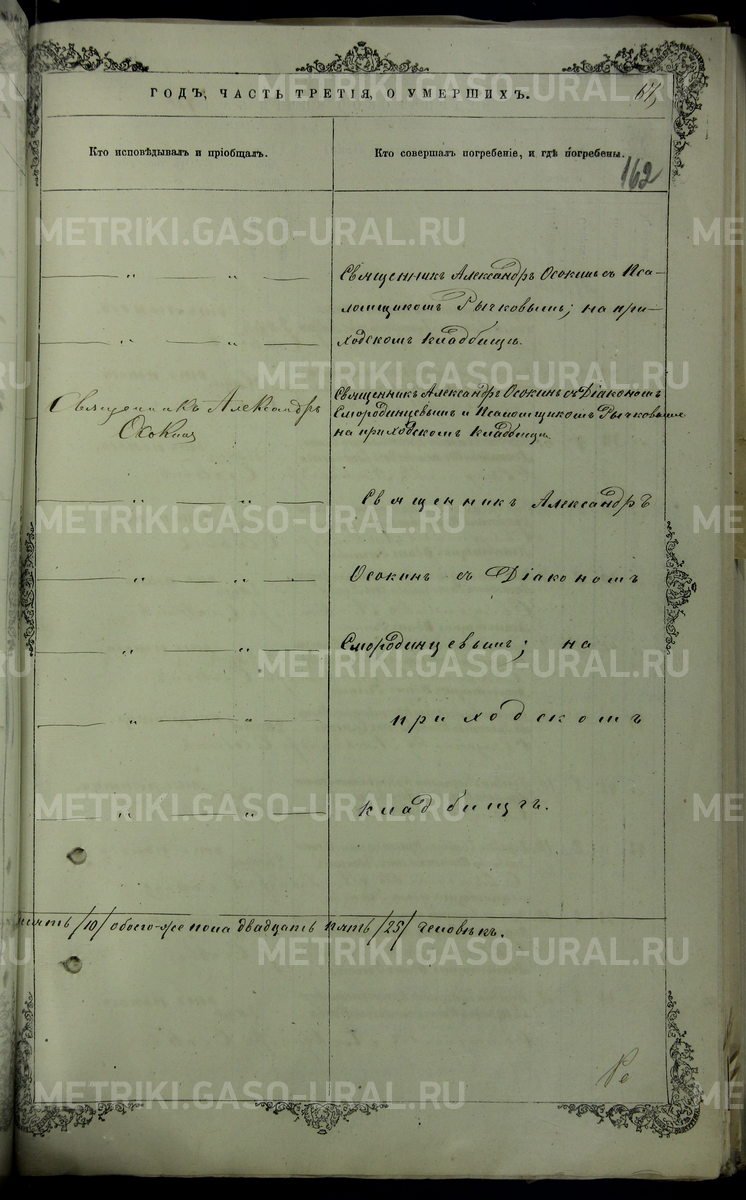 ГОДЪ, ЧАСТЬ ТРЕТІЯ, О УМЕРШИХЪ.
67,
Кто исповѣдывалъ и пріобщалъ.
Кто совершалъ погребеніе, и гдѣ погребены.
162
METRIKI.GASO-URAL.RU
— „ — „ — Священникъ Александръ Осокинъ съ Пса-
ломщикомъ Рычковымъ; на при-
— „ — „ — ходскомъ кладбищѣ.
METRIKI.GASO-URAL.RU
Священникъ Александръ
Осокинъ
Священникъ Александръ Осокинъ съ Діакономъ
Смородинцевымъ и Псаломщикомъ Рычковымъ
на приходскомъ кладбищѣ.
— „ — „ — Священникъ Александръ
METRIKI.GASO-URAL.RU
— „ — „ — Осокинъ съ Діакономъ
— „ — „ — Смородинцевымъ; на
METRIKI.GASO-URAL.RU
— „ — „ — приходскомъ
— „ — „ — кладбищѣ.
METRIKI.GASO-URAL.RU
/10/ обоего-же пола двадцать пять /25/ человѣкъ.
METRIKI.GASO-URAL.RU
METRIKI.GASO-URAL.RU